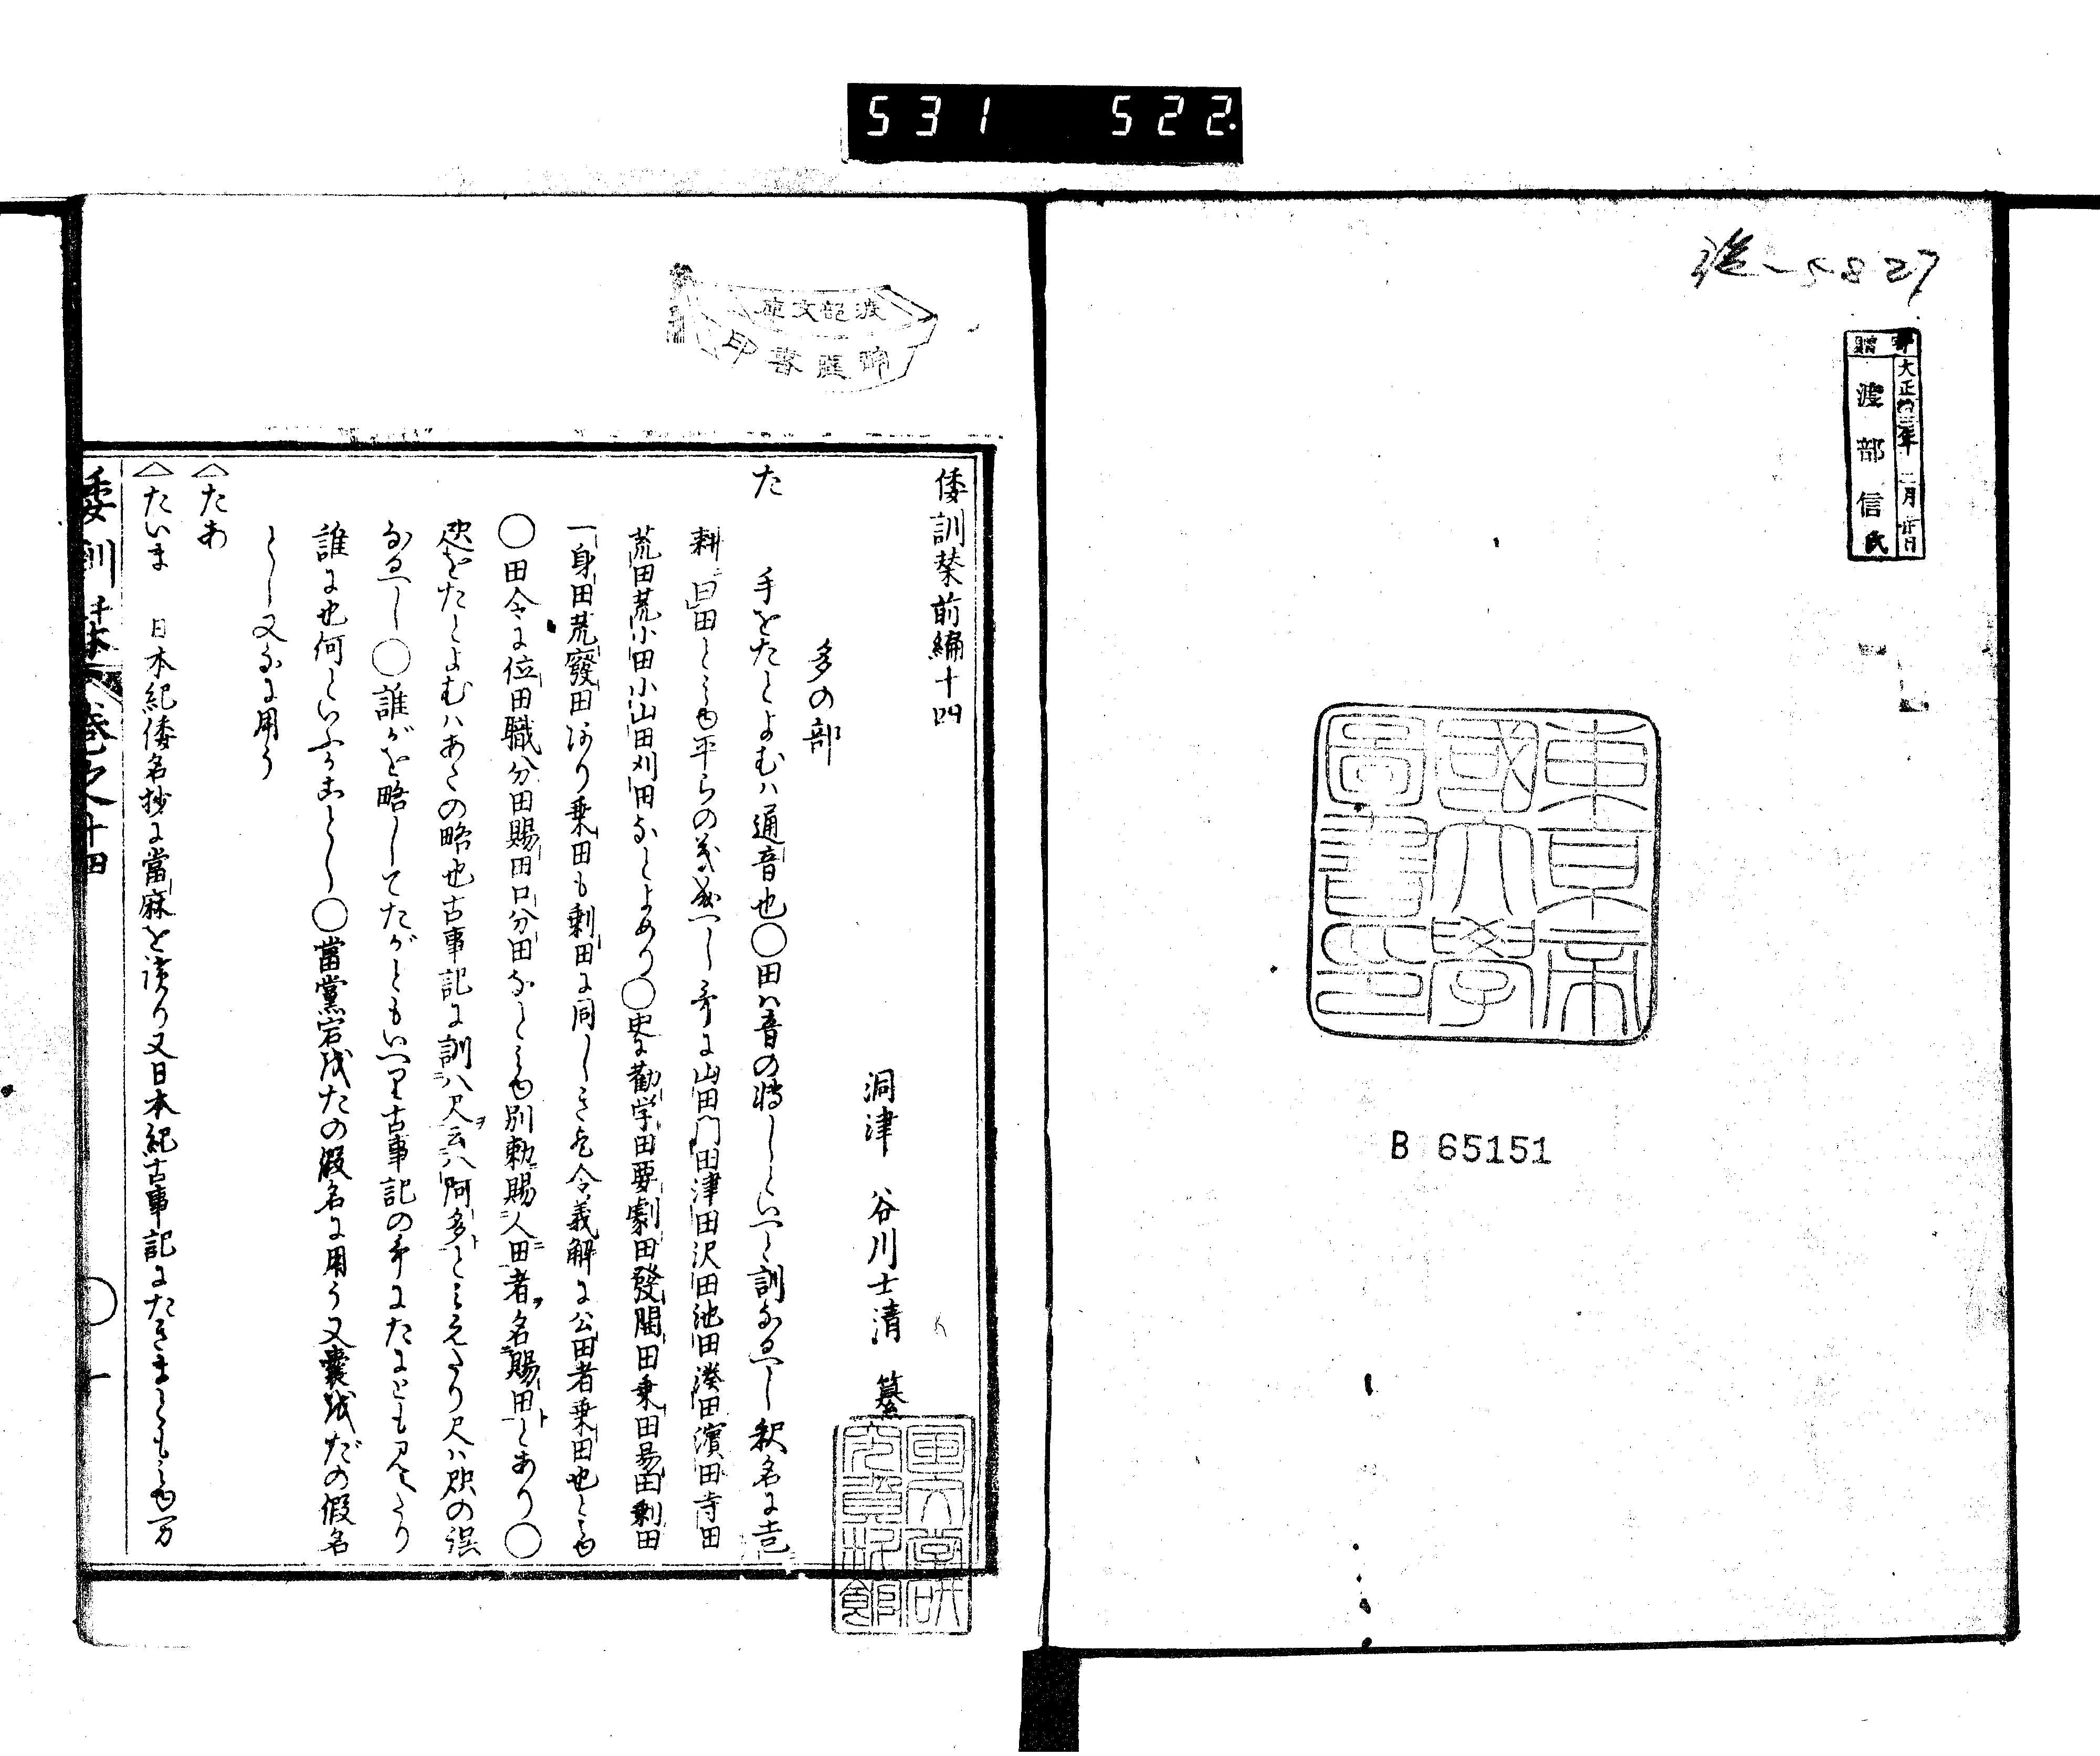 531 522.
5827
寄贈
大正十三年二月廿日
渡部信氏
東京帝
國大學
圖書印
B 65151
渡部文庫
師匠書印
倭訓栞前編十四
洞津 谷川士清 纂
多の部
た 手をたとよむハ通音也○田ハ音の轉しといへと訓なるへし釈名に已
耕曰田とみゆ平らの義成へし哥に山田門田津田沢田池田湊田濱田寺田
荒田荒小田小山田刈田なとよめり○史に勸学田要劇田發開田乗田易田剰田
一身田荒廢田あり乗田も剰田に同しきを令義解に公田者乗田也とみゆ
○田令に位田職分田賜田口分田なとみゆ別勅賜人田者名賜田とあり○
咫をたとよむハあたの略也古事記に訓八尺云八阿多とみえたり尺ハ咫の誤
なるへし○誰がを略してたがともいへり古事記の哥にたにとも見えたり
誰に也何といふかことし○當黨宕哉たの假名に用う又囊哉だの假名
とし又なに用う
△たあ
△たいま 日本紀倭名抄に當麻を讀り又日本紀古事記にたきまともみゆ万
倭訓栞 巻之十四 ○一